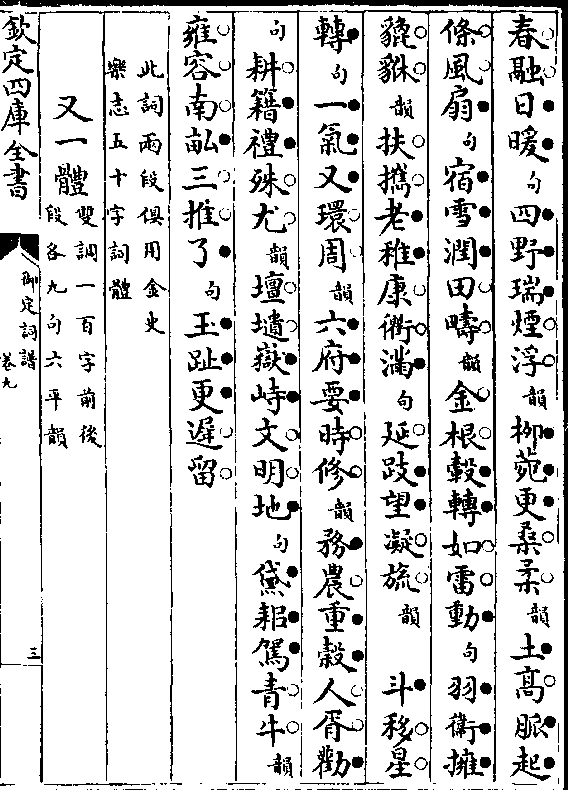 春融日暖句四野瑞煙浮韻柳菀更桑柔韻土髙脈起
條風扇句宿雪潤田疇韻金根轂轉如雷動句羽衛擁
貔貅韻扶攜老稚康衢滿句延跂望凝旒韻 斗移星
轉句一氣又環周韻六府要時修韻務農重糓人胥勸
句耕籍禮殊尤韻壇壝嶽峙文明地句黛耜駕青牛韻
雍容南畝三推了句玉趾更遲留
此詞兩段俱用金史
樂志五十字詞體
又一體雙調一百字前後
段各九句六平韻
欽定四庫全書
御定詞譜
卷九
三